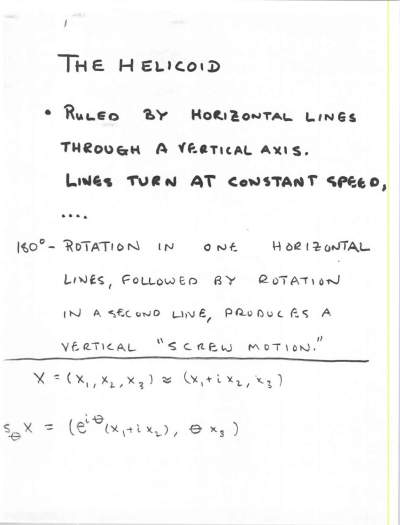 1
THE HELICOID
• RULED BY HORIZONTAL LINES
THROUGH A VERTICAL AXIS.
LINES TURN AT CONSTANT SPEED,
....
180°- ROTATION IN ONE HORIZONTAL
LINES, FOLLOWED BY ROTATION
IN A SECOND LINE, PRODUCES A
VERTICAL "SCREW MOTION."
X = (x₁, x₂, x₃) ≈ (x₁+i x₂, x₃)
S_θ X = (e^{iθ}(x₁+i x₂), θ x₃)